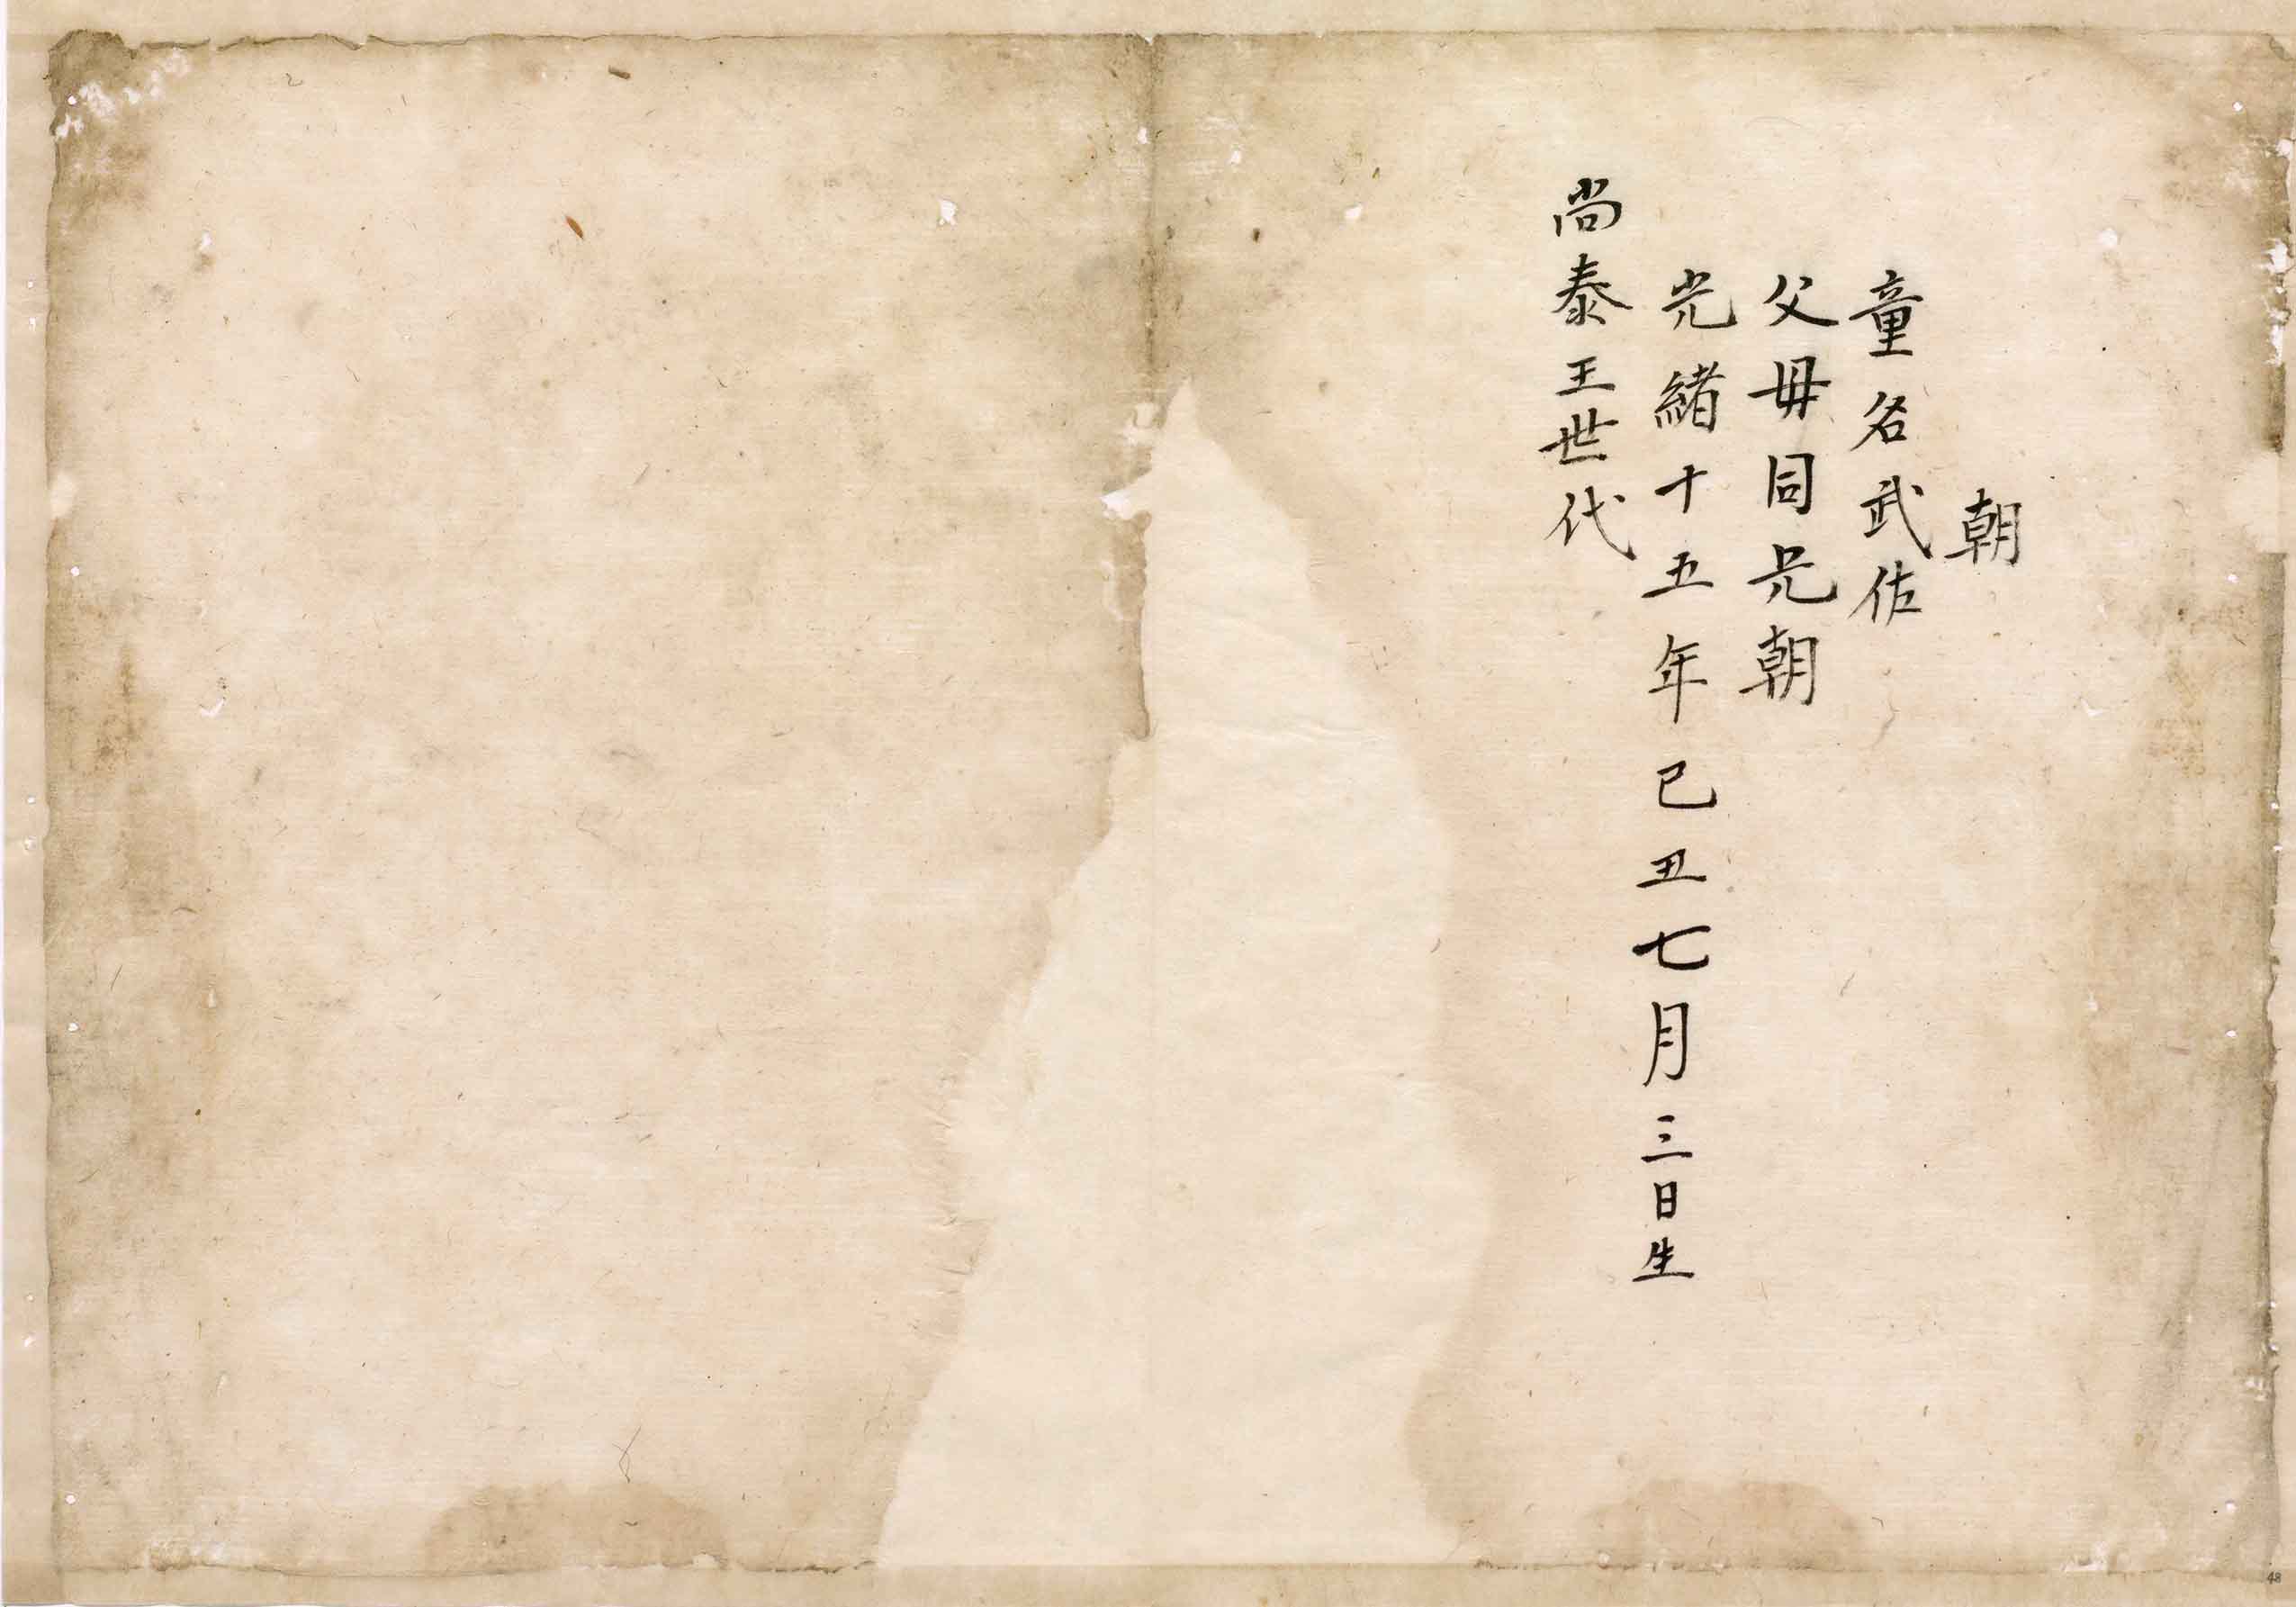 朝
童名武佐
父母同兄朝
光緒十五年己丑七月三日生
尚泰王世代
48